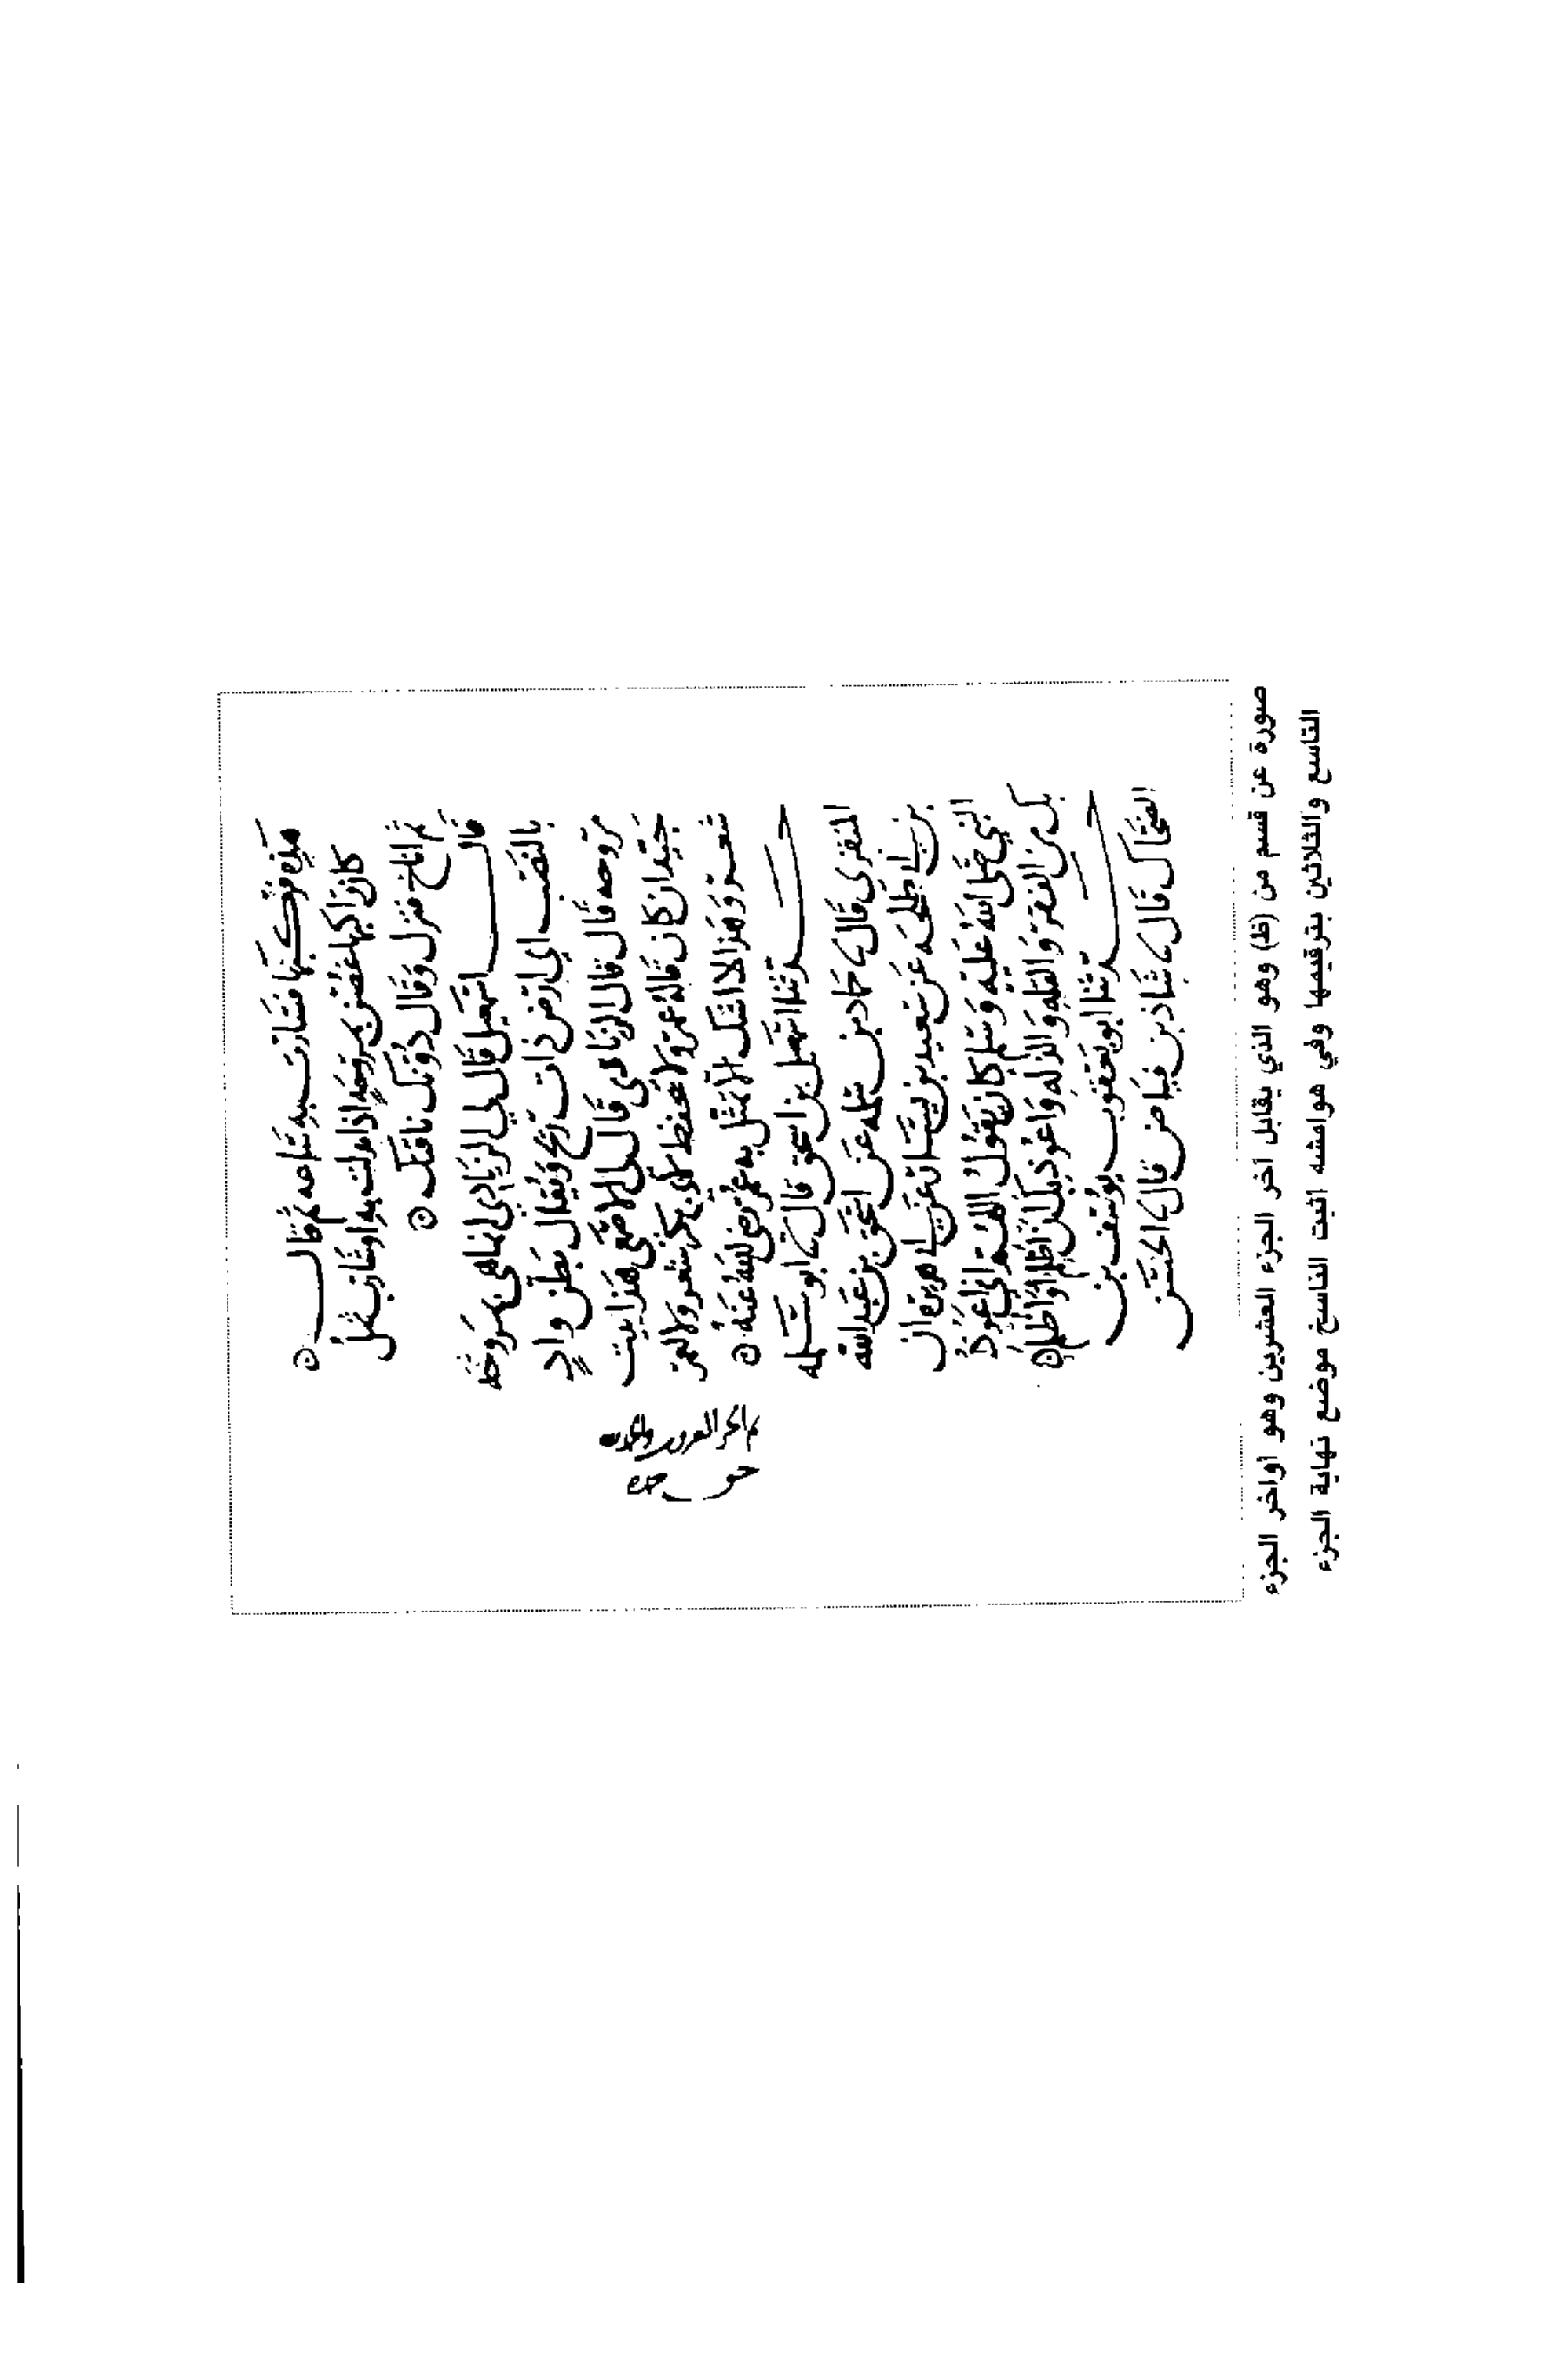 هذه فركبها فسارت به ساعه ثم قال
كان راكبها غصن بمروحة اذا تدلت به او شارب ثمل
ثم اناخ فنزل وقال دونك ناقتك
قال اسمعيل قال لي الزيادي انما هي بمروحه
بالنصب اي ارض ذات ريح ويقال بطن واد
مروحه قال قال الرياشي قال لي الاصمعي هذا بيت
جيد ان كان قاله عمر ولا نحفظ لابي بكر شعر ولا لعمر
شعر وهذا لا اشك الا تمثل به عمر رضي الله عنه
حدثنا اسمعيل بن اسحق قال نا ابو سلمه
المنقري قال نا حماد بن سلمه عن اسحق بن عبدالله
بن ابي طلحه عن سعيد بن يسار عن ابي هريرة ان
النبي صلى الله عليه وسلم كان يقول اللهم اني اعوذ
بك من الفقر والقله والذله واعوذ بك ان اظلم او اظلم
حدثنا ابو يعقوب يوسف بن
الضحاك قال نا شاذ بن فياض قال نا الحسن
صورة عن قسم من (ظ) وهو الذي يقابل آخر الجزء العشرين وهو اواخر الجزء
التاسع والثلاثين بترقيمها وفي هوامشه اثبت الناسخ موضع نهاية الجزء